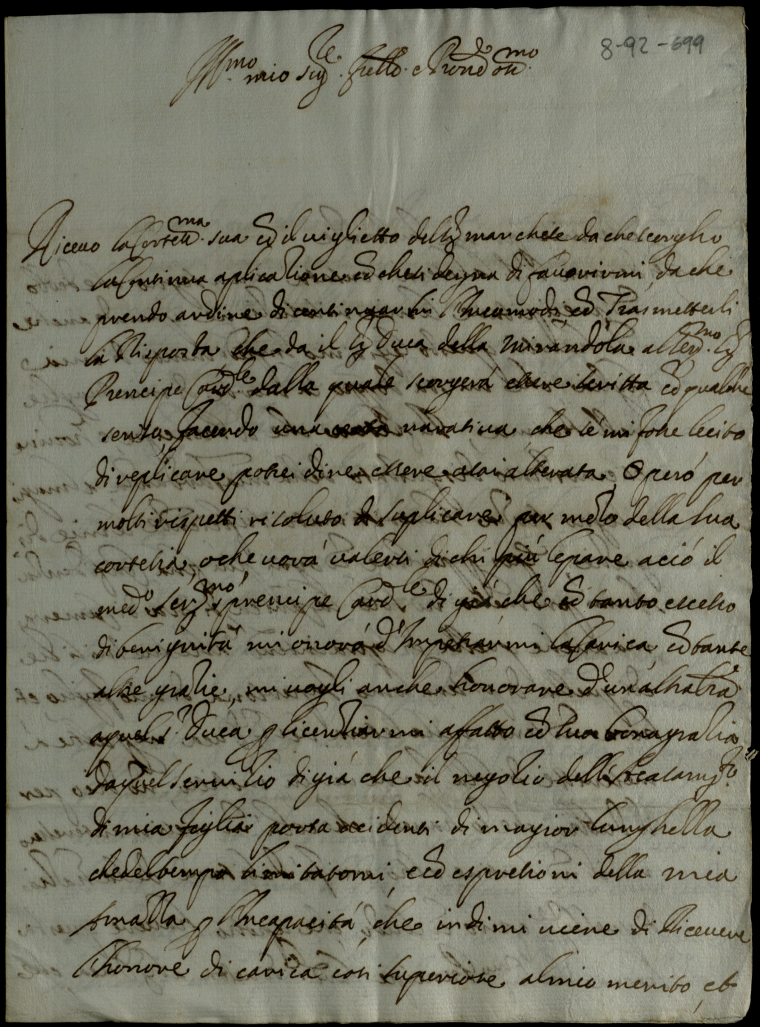 8-92-699
Ill.mo mio Sig.re fratello e Prone Oss.mo
Riceuo la Cortes.ma sua et il uiglietto del S.r marchese da che scorgho
la Continua aplicatione che si degna di fauorirmi, da che
prendo ardire di continuarli l'Incomodi et Trasmetterli
la Risposta che da il S.r Duca della Mirandola al Ser.mo S.r
Prencipe Card.le dalla quale scorgerá essere scritta con qualche
senso, facendo una narativa che se mi fosse lecito
di replicare potrei dire essere assai alterata, O peró per
molti rispetti risoluto di suplicare per mezo della sua
cortesia, o che uorá ualersi di chi piú le pare ació il
med.o Ser.mo prencipe Card.le di giá che con tanto eccesso
di benignitá mi onorá d'Impetrarmi la Carica et tante
altre gratie, mi uogli anche honorare d'un'altra
a quel S.r Duca per licentiarmi affatto con sua bona gratia
da quel seruitio di giá che il negotio dell'
di mia foglia porta accidenti di magior lunghezza
che del tempo limitatomi, e con espressioni della mia
somma Incapacitá, che indi mi uiene di Riceuere
l'honore di carica cosi superiore al mio merito, et